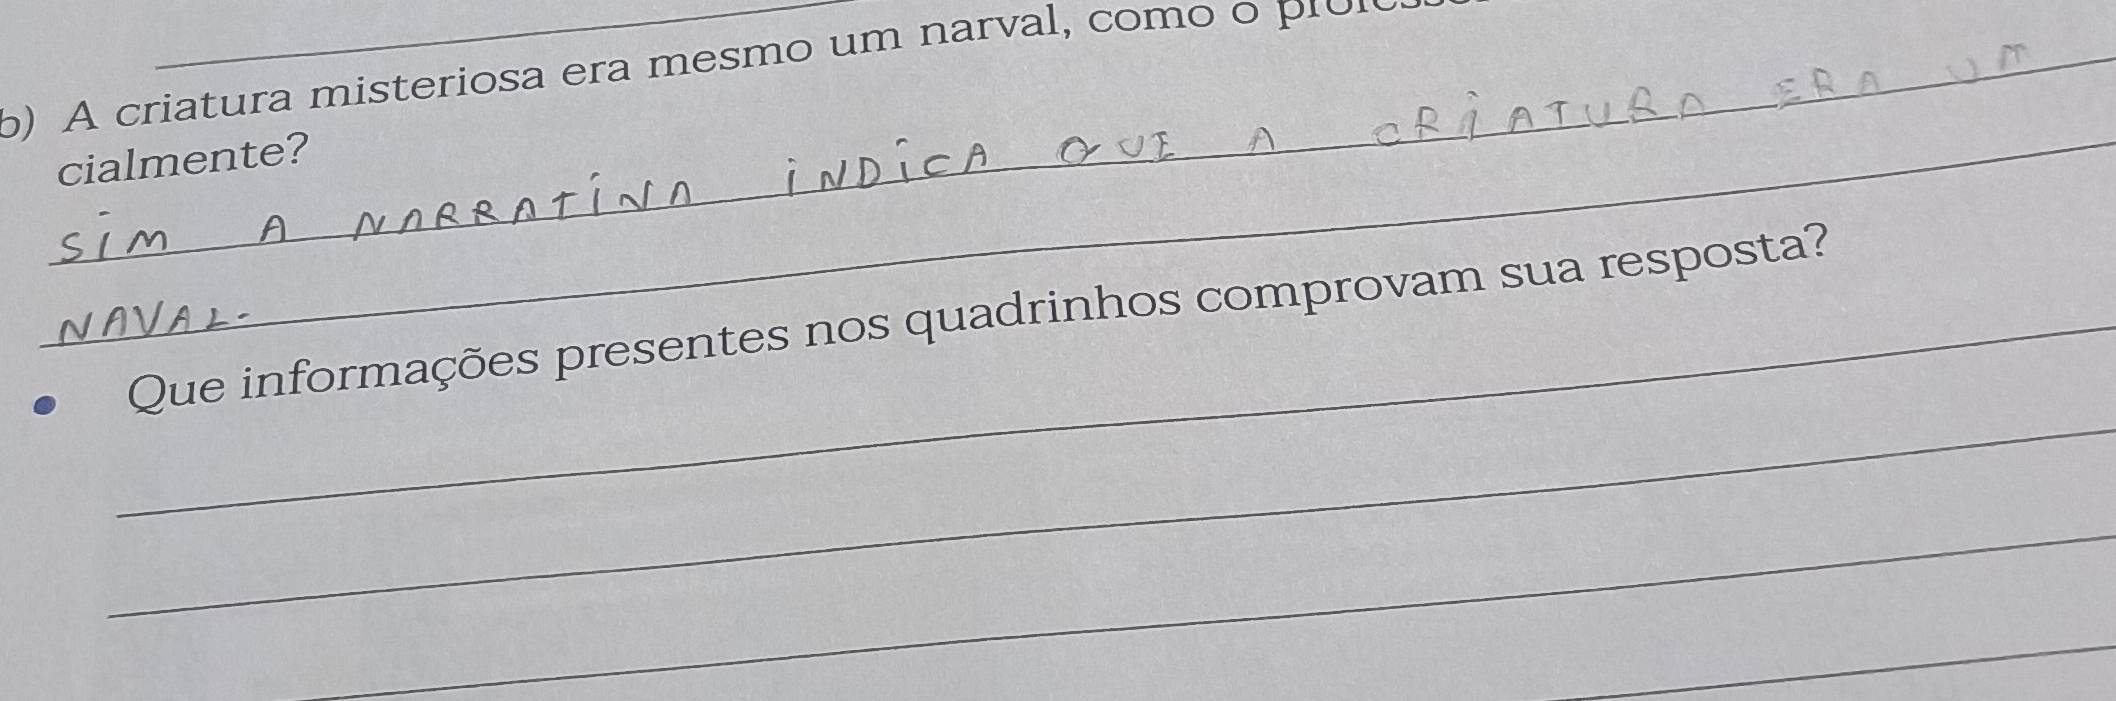 b) A criatura misteriosa era mesmo um narval, como o
cialmente?
SIM A NARRATIVA INDICA QUE A CRIATURA ERA UM
NAVAL.
• Que informações presentes nos quadrinhos comprovam sua resposta?